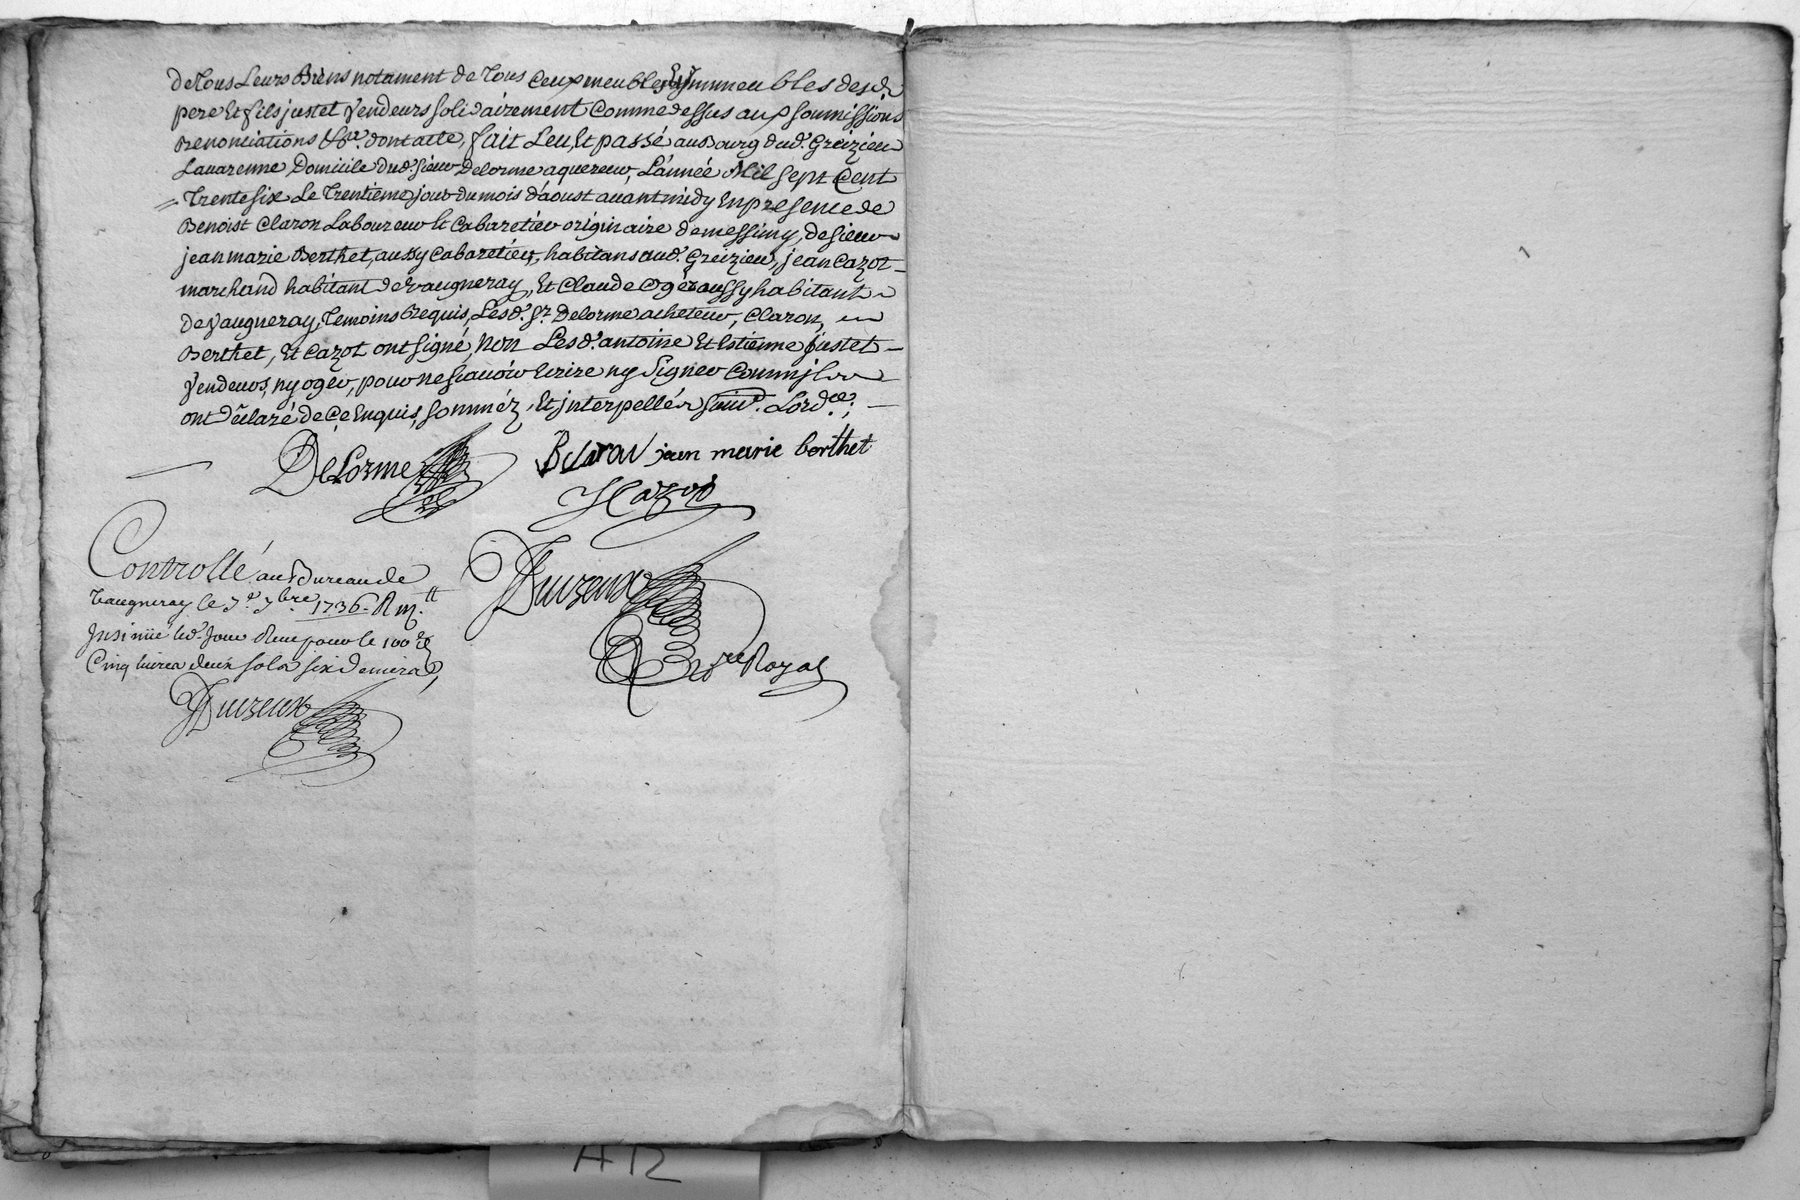 de Tous Leurs Biens notament de Tous Ceux meubles Et immeubles desd.
pere Et fils justet vendeurs solidairement Comme dessus aux soumissions
Renonciations &c. dont acte, fait Leu Et passé au Bourg dud. Greizieu
Lavarenne Domicile dud. sieur Delorme aquereur, L'année Mil sept Cent
Trente six Le Trentieme jour du mois d'aoust avant midy En presence de
Benoist Claron Laboureur Et Cabaretier originaire de messimy, de sieur
jean marie Berthet, aussy Cabaretier, habitans aud. Greizieu, jean Cazot
marchand habitant de vaugneray, Et Claude Oger aussy habitant
de vaugneray, Temoins Requis, Lesd. Sr. Delorme acheteur, Claron,
Berthet, Et Cazot ont signé, non Lesd. antoine Et Estienne justet
vendeurs, ny oger, pour ne sçavoir Ecrire ny Signer Comm'ils
ont déclaré de Ce Enquis, somméz, Et interpellés suiv. Lord.ce;
DeLorme B Claron jean marie berthet
J Cazot
Controllé au Bureau de
Vaugneray le 7.e 7bre. 1736. R
Insinué led. Jour Reçu pour le 100.e
Cinq livres deux sols six deniers,
Duizeux
Duizeux
Re Royal
A12